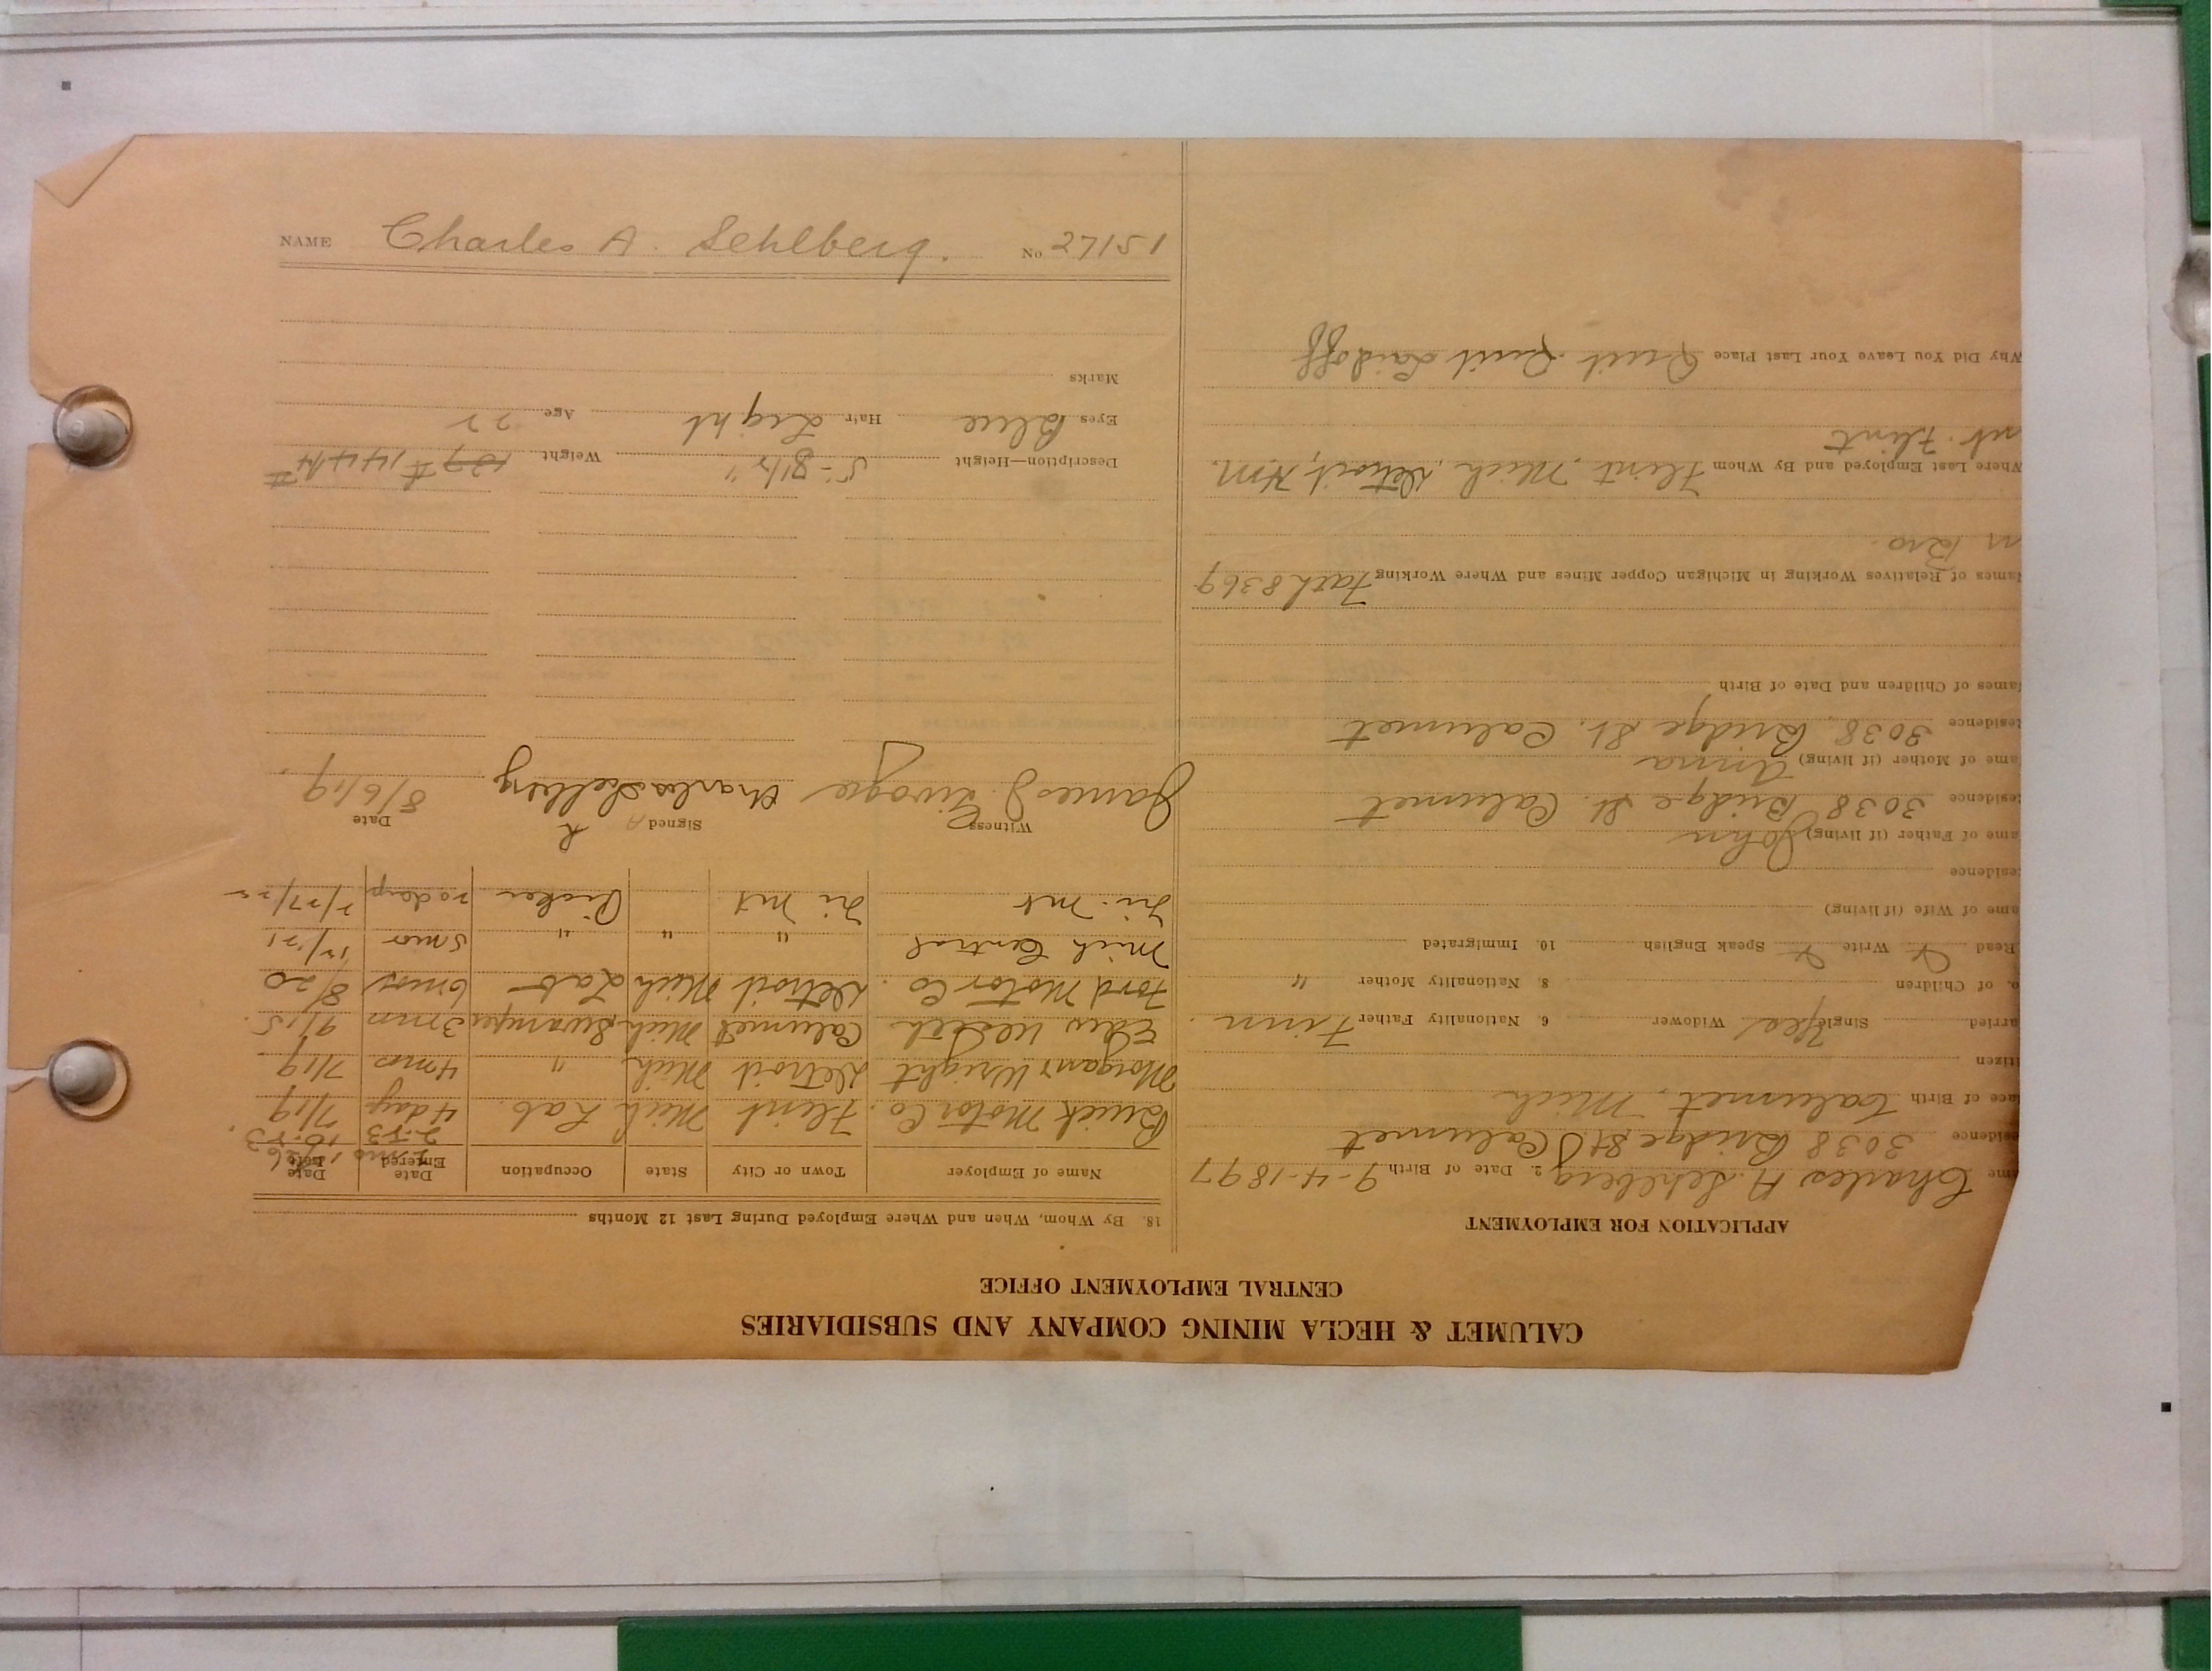 CALUMET & HECLA MINING COMPANY AND SUBSIDIARIES
CENTRAL EMPLOYMENT OFFICE
APPLICATION FOR EMPLOYMENT
ame Charles A. Sehlberg 2. Date of Birth 9-4-1897
esidence 3038 Bridge St Calumet
lace of Birth Calumet, Mich
itizen
arried Single Yes Widower 6. Nationality Father Finn
o. of Children 8. Nationality Mother "
Read Write Speak English 10. Immigrated
ame of Wife (if living)
esidence
ame of Father (if living) John
esidence 3038 Bridge St. Calumet
ame of Mother (if living) Anna
esidence 3038 Bridge St. Calumet
ames of Children and Date of Birth
ames of Relatives Working in Michigan Copper Mines and Where Working Fath 8369
Bro.
Where Last Employed and By Whom Flint, Mich, Detroit,
Flint
Why Did You Leave Your Last Place Quit Quit Laid off
18. By Whom, When and Where Employed During Last 12 Months
Name of Employer Town or City State Occupation Date Entered Date Left
Buick Motor Co. Flint Mich Lab. 4 days 7/19
Morgan & Wright Detroit Mich " 4 mos 7/19
Calumet Mich Swamper 3 mos 9/15
Ford Motor Co. Detroit Mich Lab 6 mos 8/20
Mich Central " " " 5 mos
Tri. Mt Tri Mt Picker 20 days
Witness Signed Date
James J. Charles Sehlberg 8/6/19
Description—Height 5-8 1/2" Weight 137# 144#
Eyes Blue Hair Light Age 22
Marks
NAME Charles A. Sehlberg. No 27151